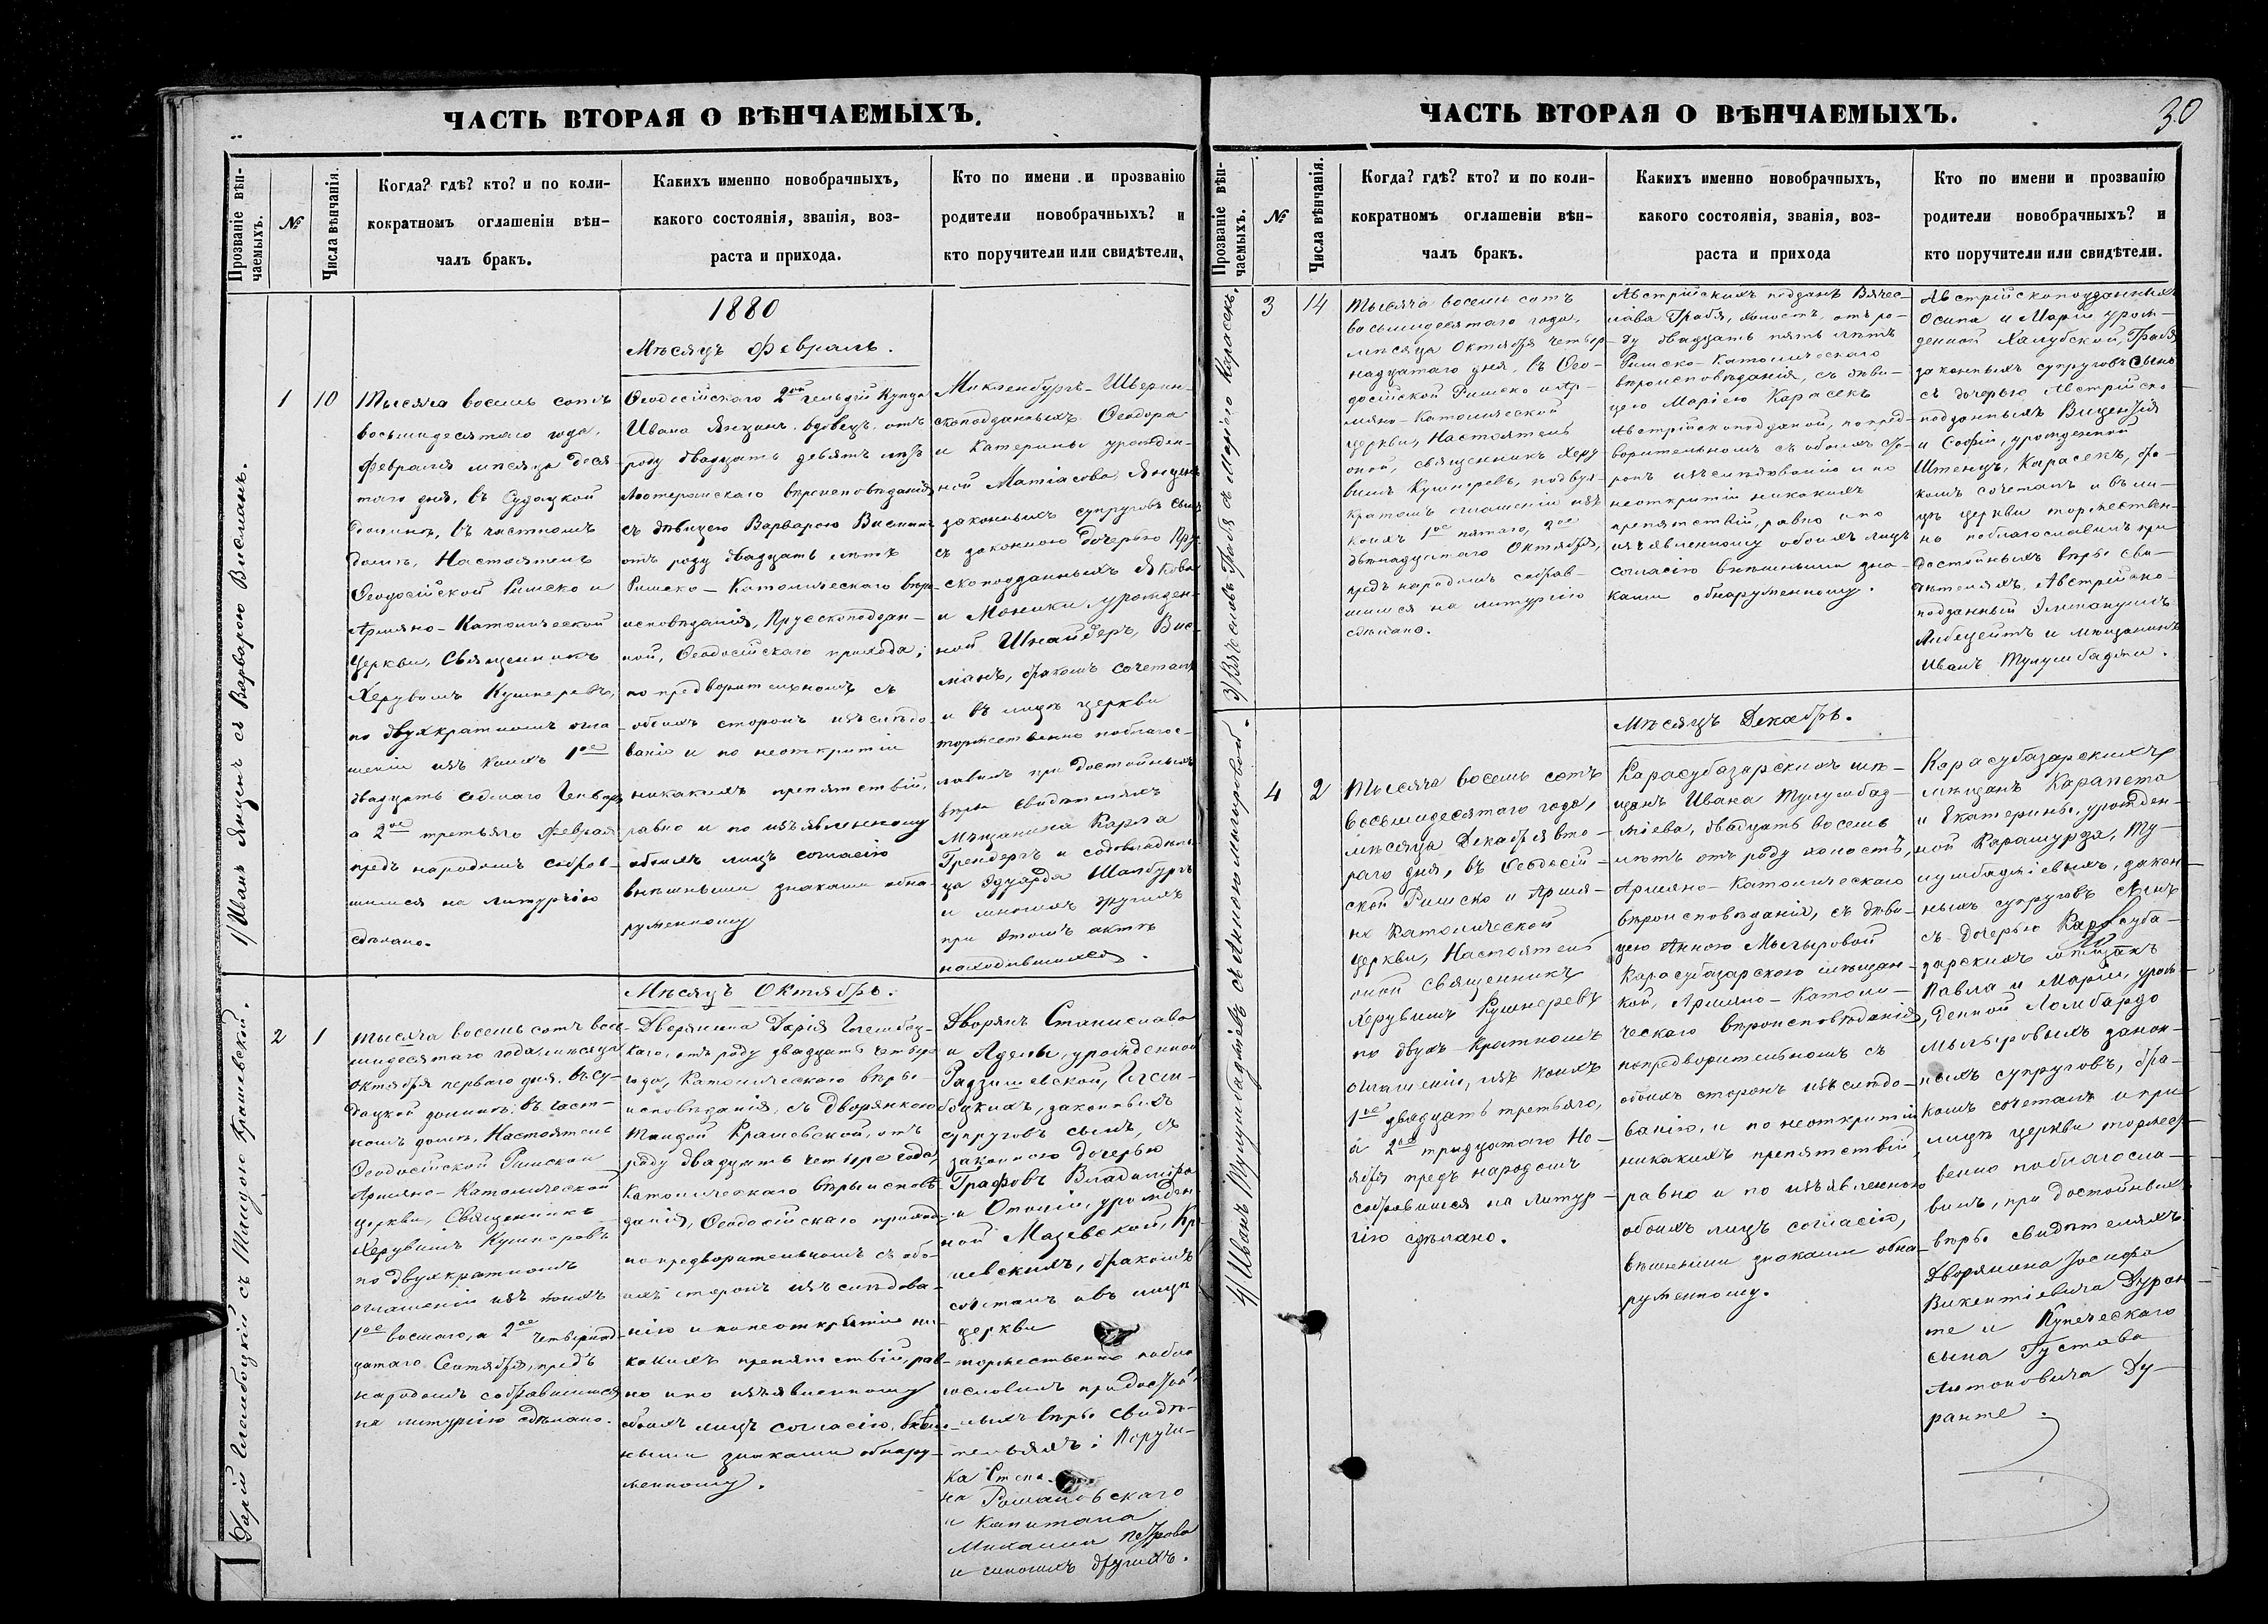 ЧАСТЬ ВТОРАЯ О ВѢНЧАЕМЫХЪ.
Прозваніе вѣн-
чаемыхъ.
№
Числа вѣнчанія.
Когда? гдѣ? кто? и по коли-
кократномъ оглашеніи вѣн-
чалъ бракъ.
Какихъ именно новобрачныхъ,
какого состоянія, званія, воз-
раста и прихода.
Кто по имени и прозванію
родители новобрачныхъ? и
кто поручители или свидѣтели.
1880
Мѣсяцъ Февраль.
1/ Иванъ Янценъ съ Варварою Висманъ.
1
10
Тысяча восемь сотъ
восьмидесятаго года,
Февраля мѣсяца деся
таго дня, въ Судацкой
Долинѣ, въ частномъ
домѣ, Настоятель
Ѳеодосійской Римско и
Армяно-Католической
Церкви, Священникъ
Херувимъ Кушнеревъ,
по двухкратномъ огла
шеніи изъ коихъ 1ое
двадцать седмаго Генваря
а 2ое третьяго Февраля
предъ народомъ собрав-
шимся на литургію
сдѣлано.
Ѳеодосійскаго 2ой гильдіи Купца
Ивана Янценъ, вдовецъ, отъ
роду двадцать девять лѣтъ
Лютеранскаго вѣроисповѣданія
съ дѣвицею Варварою Висманъ
отъ роду двадцать лѣтъ
Римско-Католическаго вѣро-
исповѣданія, Прускоподдан-
ной, Ѳеодосійскаго прихода;
по предворительномъ съ
обоихъ сторонъ изъслѣдо
ваніи и по неоткритіи
никакихъ препятствій,
равно и по изъявленному
обоихъ лицъ согласію
внѣшными знаками обна-
руженному
Микленбургъ-Шверин-
скоподданныхъ Ѳеодора
и Катерины урожден-
ной Матіасова, Янценъ
законныхъ супруговъ сынъ
съ законною дочерью Пру-
скоподданныхъ Якова
и Моники, урожден-
ной Шнайдеръ, Вис-
манъ, бракомъ сочеталъ
и въ лицѣ церкви
торжественно поблагос-
ловилъ при достойныхъ
вѣры свидѣтеляхъ
Мѣщанина Карла
и многихъ другихъ
при этомъ актѣ
находившихся.
Мѣсяцъ Октябрь.
2
1
Тысяча восемь сотъ вось-
мидесятаго года, мѣсяца
Октября перваго дня, въ Су-
дацкой долинѣ, въ част-
номъ домѣ, Настоятель
Ѳеодосійской Римско и
Армяно-Католической
церкви, Священникъ
Херувимъ Кушнеревъ
по двухкратномъ
оглашеніи изъ коихъ
1ое восмаго, а 2ое четырнад-
цатаго Сентября, предъ
народомъ собравшимся
на литургію сдѣлано.
каго, отъ роду двадцать четыре
года, Католическаго вѣро-
исповѣданія, съ дворянкою
Крашевской, отъ
роду двадцать четыре года,
Католическаго вѣрыисповѣ-
данія, Ѳеодосійскаго прихода
по предворительномъ съ обо-
ихъ сторонъ изъслѣдова-
нію и по неоткритіи ни-
какихъ препятствій, рав-
но и по изъявленному
обоихъ лицъ согласію, внѣш-
ными знаками обнару-
женному.
Дворянъ Станислава
и Адели, урожденной
Радзишевской,
законныхъ
супруговъ сынъ, съ
законною дочерью
Графовъ Владиміра
и Отиліи, урожден
ной Мазевской, Кра-
шевскихъ, бракомъ
сочеталъ и въ лицѣ
церкви
торжественно побла
гословилъ при достой-
ныхъ вѣры свидѣ-
теляхъ: Поручи-
ка Степа-
на Романовскаго
и Капитана
Михаила Петрова
и многихъ другихъ.
ЧАСТЬ ВТОРАЯ О ВѢНЧАЕМЫХЪ.
30
Прозваніе вѣн-
чаемыхъ.
№
Числа вѣнчанія.
Когда? гдѣ? кто? и по коли-
кократномъ оглашеніи вѣн-
чалъ бракъ.
Какихъ именно новобрачныхъ,
какого состоянія, званія, воз-
раста и прихода
Кто по имени и прозванію
родители новобрачныхъ? и
кто поручители или свидѣтели.
3/ Вячеславъ Грабя съ Маріею Карасекъ.
3
14
Тысяча восемь сотъ
восьмидесятаго года,
мѣсяца Октября четыр
надцатаго дня, въ Ѳео-
досійской Римско и Ар-
мяно-Католической
Церкви, Настоятель
оной, священникъ Херу
вимъ Кушнеревъ, по двух-
кратномъ оглашеніи изъ
коихъ 1ое пятаго, 2ое
двѣнадцатаго Октября,
предъ народомъ собрав-
шимся на литургію
сдѣлано.
Австрійскихъ подданъ Вячес-
лава Грабя, холостъ, отъ ро-
ду двадцать пять лѣтъ
Римско-Католическаго
вѣроисповѣданія, съ дѣви-
цею Маріею Карасекъ
Австрійскоподданой, по пред-
ворительномъ съ обоихъ сто-
ронъ изъслѣдованію и по
неоткритіи никакихъ
препятствій, равно и по
изъявленному обоихъ лицъ
согласію внѣшными зна-
ками обнаруженному.
Австрійскоподданныхъ
Осипа и Маріи урож-
денной Халубской, Грабя
законныхъ супруговъ сынъ
съ дочерью Австрійско-
подданныхъ Виценція
и Софіи, урожденной
Штенцъ, Карасекъ, бра-
комъ сочеталъ и въ ли-
цѣ церкви торжествен-
но поблагословилъ при
достойныхъ вѣры сви-
дѣтеляхъ, Австрійско-
подданный
и мѣщанинъ
Иванъ Тулумбаджи.
Мѣсяцъ Декабрь.
4
2
Тысяча восемь сотъ
восьмидесятаго года,
мѣсяца Декабря вто-
раго дня, въ Ѳеодосій-
ской Римско и Армя-
но Католической
Церкви, Настоятель
оной Священникъ
Херувимъ Кушнеревъ
по двухъ кратномъ
оглашеніи, изъ коихъ
1ое двадцать третьяго,
а 2ое тридцатаго Но-
ября предъ народомъ
собравшимся на литур-
гію сдѣлано.
Карасубазарскихъ мѣ-
щанъ Ивана Тулумбад-
жіева, двадцать восемь
лѣтъ отъ роду холостъ,
Армяно-Католическаго
вѣроисповѣданія, съ дѣви-
цею Анною Мыгыровой
Карасубазарскою мѣщан-
кой, Армяно-Католи-
ческаго вѣроисповѣданія,
по предворительномъ съ
обоихъ сторонъ изъслѣдо-
ванію, и по неоткритіи
никакихъ препятствій
равно и по изъявленною
обоихъ лицъ согласію,
внѣшными знаками обна-
руженному.
Карасубазарскихъ
мѣщанъ Карапета
и Екатерины, урожден-
ной Карамурза, Ту-
лумбаджіевыхъ, закон-
ныхъ супруговъ сынъ
съ дочерью Карасуба-
зарскихъ мѣщанъ
Павла и Маріи, урож-
денной Ломбардо
Мыгыровыхъ закон-
ныхъ супруговъ, бра-
комъ сочеталъ и при
лицѣ церкви торжест-
венно поблагосло-
вилъ, при достойныхъ
вѣры свидѣтеляхъ
Дворянина Іосифа
Викентіевича Дуран
те и Купеческаго
сына Густава
Антоновича Ду-
ранте.